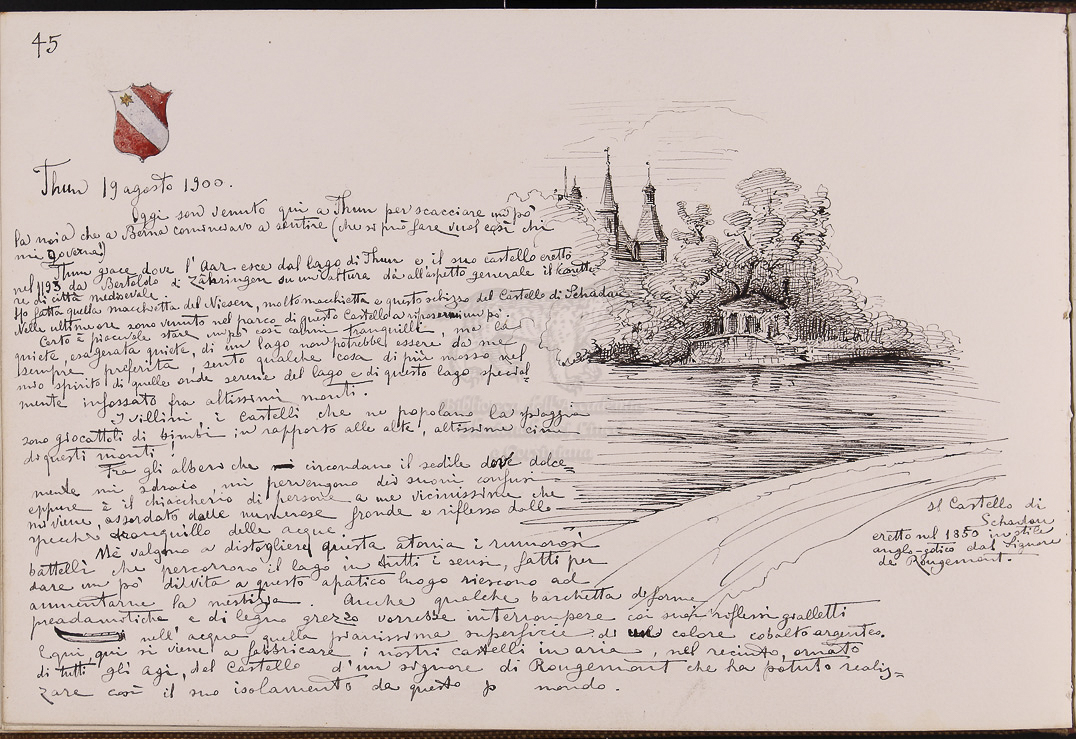 45
Thun 19 agosto 1900.
Oggi son venuto qui a Thun per scacciare un pò
la noia che a Berna cominciavo a sentire (che si può fare vuol così chi
mi governa!)
Thun giace dove l'Aar esce dal lago di Thun e il suo castello eretto
nel 1193 da Bertoldo di Zähringen su un'altura dà all'aspetto generale il caratte
re di città medioevale.
Ho fatta quella macchietta del Niesen, molto macchietta e questo schizzo del Castello di Schadau
Nelle ultime ore sono venuto nel parco di questo Castello a riposarmi un pò.
Certo è piacevole stare un pò così calmi tranquilli, ma la
quiete, esagerata quiete, di un lago non potrebbe essere da me
sempre preferita, sento qualche cosa di più mosso nel
mio spirito di quelle onde serene del lago e di questo lago special-
mente infossato fra altissimi monti.
I villini, i castelli che ne popolano la spiaggia
sono giocattoli di bimbi in rapporto alle alte, altissime cime
di questi monti.
Fra gli alberi che circondano il sedile dove dolce=
mente mi sdraio, mi pervengono dei suoni confusi
eppure è il chiaccherio di persone a me vicinissime che
mi viene, assordato dalle numerose fronde e riflesso dallo
specchio tranquillo delle acque.
Nè valgono a distogliere questa atonia i rumorosi
battelli che percorrono il lago in tutti i sensi, fatti per
dare un pò di vita a questo apatico luogo riescono ad
aumentarne la mestizia. Anche qualche barchetta deforme
preadamitiche e di legno grezzo vorrebbe interrompere coi suoi riflessi gialletti
nell'acqua quella pianissima superficie di colore cobalto argenteo.
E qui, qui si viene a fabbricare i nostri castelli in aria, nel recinto, ornato
di tutti gli agi, del Castello d'un signore di Rougemont che ha potuto realiz=
zare così il suo isolamento da questo mondo.
Il Castello di
Schadau
eretto nel 1850 in stile
anglo-gotico dal Signore
de Rougemont.